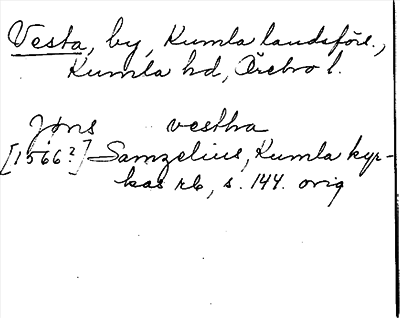 Vesta, by, Kumla landsförs.,
Kumla hd, Örebro l.
Jøns vestha
[1566?] Samzelius, Kumla kyr-
kas rb, s. 144. orig